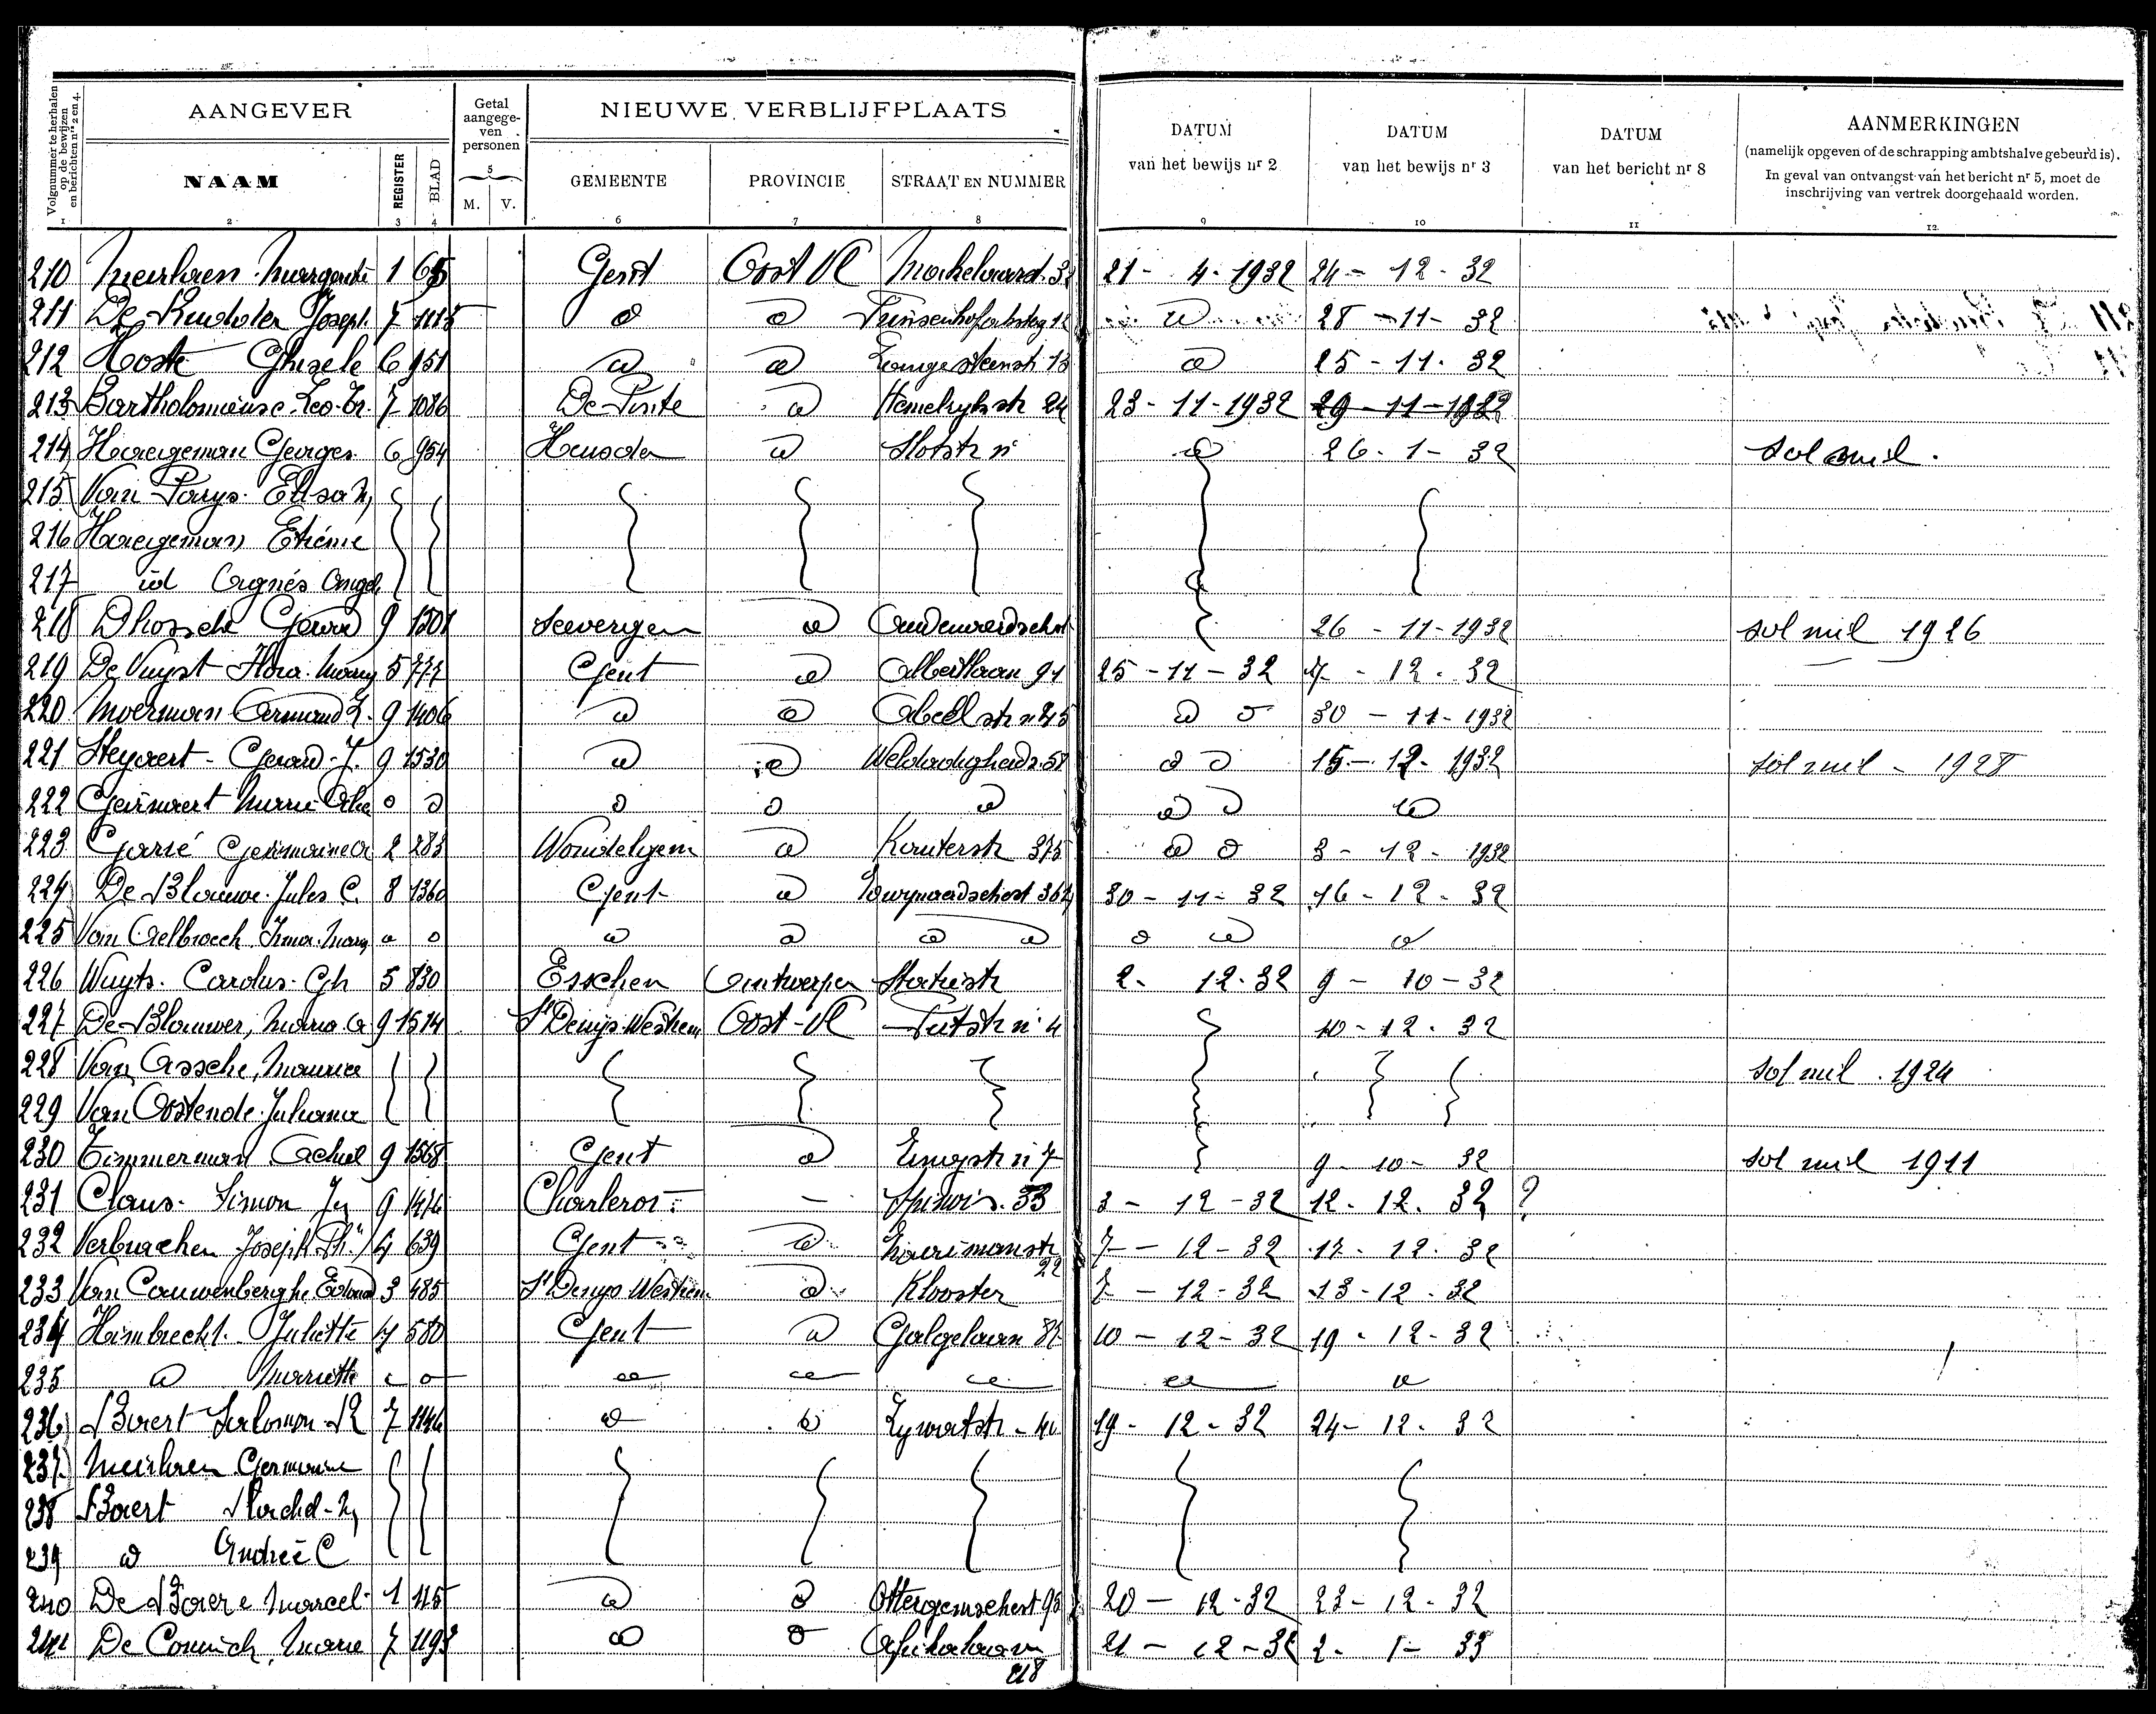 Volgnummer te herhalen op de bewijzen en berichten nrs 2 en 4.
AANGEVER
Getal aangegeven personen
NIEUWE VERBLIJFPLAATS
DATUM van het bewijs nr 2
DATUM van het bewijs nr 3
DATUM van het bericht nr 8
AANMERKINGEN
(namelijk opgeven of de schrapping ambtshalve gebeurd is).
In geval van ontvangst van het bericht nr 5, moet de
inschrijving van vertrek doorgehaald worden.
NAAM REGISTER BLAD M. V. GEMEENTE PROVINCIE STRAAT EN NUMMER
1 2 3 4 5 6 7 8 9 10 11 12
210 1 65 Gent Oost Vl 21 - 4 - 1932 24 - 12 - 32
211 Joseph 7 1115 28 - 11 - 32
212 Hoste Ghisele 6 951 Langesteenstr 13 25 - 11 - 32
213 7 1086 De Pinte Hemelrykstr 24 23 - 11 - 1932 29 - 11 - 1932
214 Haegeman Georges 6 954 Heusden 26 - 1 - 32 sol mil.
215 Van Parys Elisa M
216 Haegeman Etienne
217 id Agnés Angel
218 Dhossche Gerard 9 1501 Seevergem 26 - 11 - 1932 sol mil 1926
219 De Vuyst Flora 5 777 Gent Albertlaan 91 25 - 11 - 32 7 - 12 - 32
220 Moerman Armand L. 9 1406 Abeelstr n 45 30 - 11 - 1932
221 Steyaert - Gerard J. 9 1530 Weldadigheids 58 15 - 12 - 1932 sol mil - 1928
222 Geirnaert Marie
223 Garré Germaine 2 283 Wondelgem Kouterstr 375 3 - 12 - 1932
224 De Blauwe Jules C. 8 1360 Gent Zwynaardschest 364 30 - 11 - 32 16 - 12 - 32
225 Van Aelbroeck Irma
226 Wuyts Carolus 5 830 Esschen Antwerpen Statiestr 2 - 12 - 32 9 - 10 - 32
227 De Blauwer, Maria 9 1514 St Denys Westrem Oost - Vl Putstr n 4 10 - 12 - 32
228 Van Assche, Maurice sol mil. 1924
229 Van Oostende Juliana
230 Timmerman Achiel 9 1568 Gent 9 - 10 - 32 sol mil 1911
231 Claus Simon 9 1476 Charleroi Spinois 33 3 - 12 - 32 12 - 12 - 32 ?
232 Joseph 4 639 Gent 22 7 - 12 - 32 17 - 12 - 32
233 Van Cauwenberghe 3 485 St Denys Westrem Klooster 7 - 12 - 32 13 - 12 - 32
234 Haimbrecht Juliette 4 580 Gent Galgelaan 10 - 12 - 32 19 - 12 - 32
235 Mariette
236 Baert Salomon 7 1146 19 - 12 - 32 24 - 12 - 32
237 Germaine
238 Baert Rachel
239 André C
240 De Baere Marcel 1 115 20 - 12 - 32 23 - 12 - 32
241 De Coninck, Marie 7 1193 Afrikalaan 218 21 - 12 - 32 2 - 1 - 33